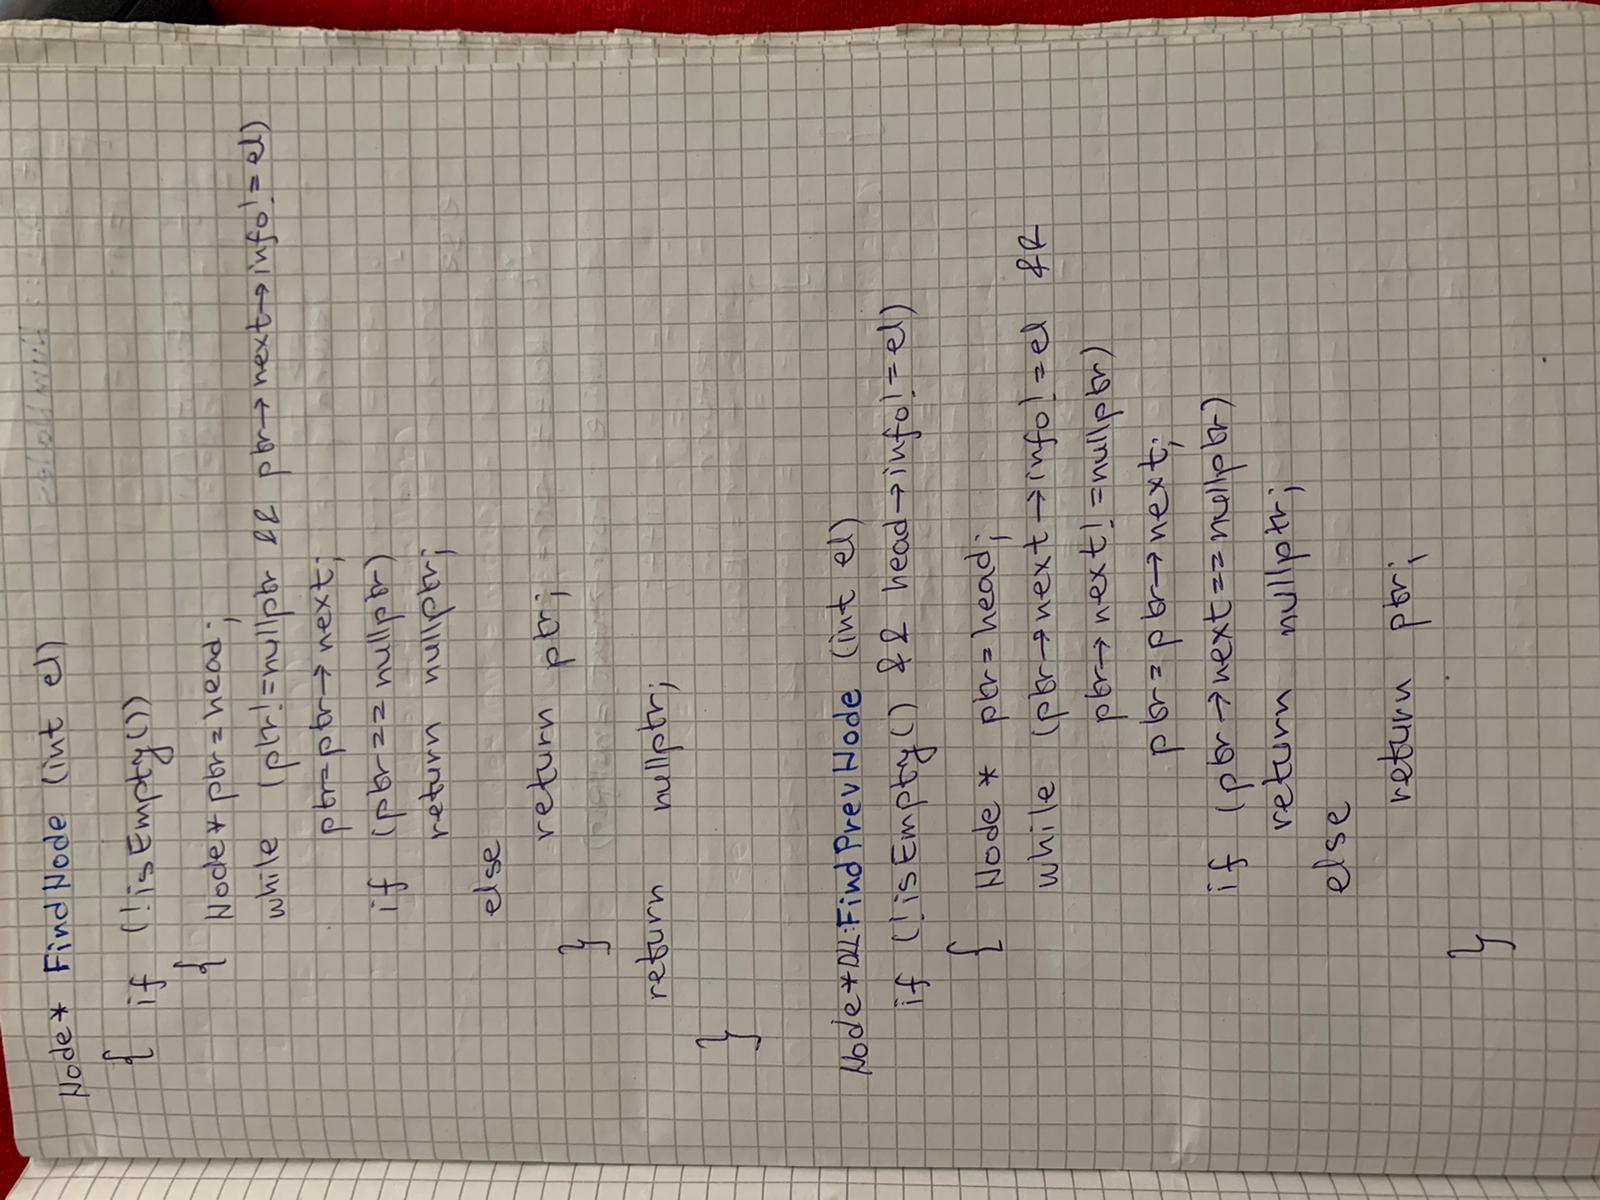 Node* FindNode (int el)
{ if (!isEmpty())
{ Node* ptr=head;
while (ptr!=nullptr && ptr→next→info!=el)
ptr=ptr→next;
if (ptr==nullptr)
return nullptr;
else
return ptr;
}
return nullptr;
}
Node*DLL:FindPrevNode (int el)
if (!isEmpty() && head→info!=el)
{ Node* ptr=head;
while (ptr→next→info!=el &&
ptr→next!=nullptr)
ptr=ptr→next;
if (ptr→next==nullptr)
return nullptr;
else
return ptr;
}